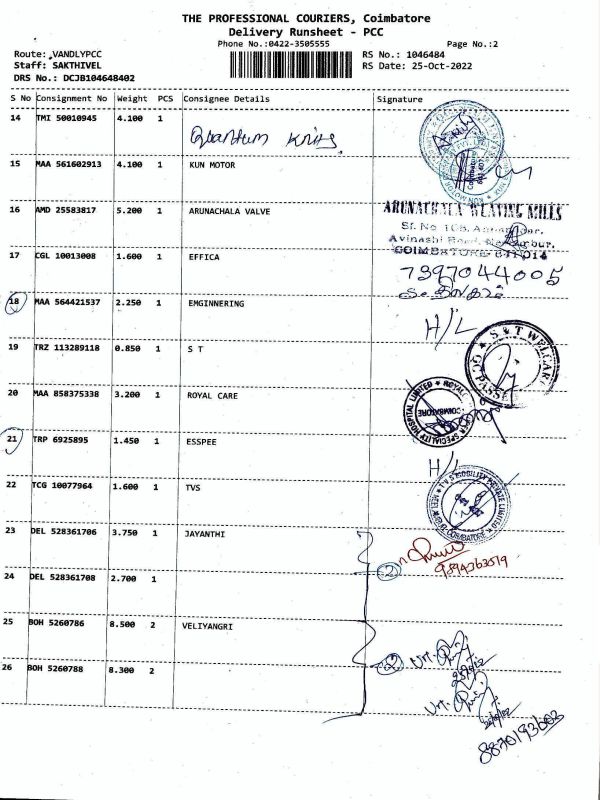 THE PROFESSIONAL COURIERS, Coimbatore
Delivery Runsheet - PCC
Phone No.:0422-3505555 Page No.:2
Route: VANDLYPCC RS No.: 1046484
Staff: SAKTHIVEL RS Date: 25-Oct-2022
DRS No.: DCJB104648402
S No Consignment No Weight PCS Consignee Details Signature
14 TMI 50010945 4.100 1 Quantum Knits
15 MAA 561602913 4.100 1 KUN MOTOR
16 AMD 25583817 5.200 1 ARUNACHALA VALVE
ARUNACHALA WEAVING MILLS
Avinashi Road
COIMBATORE 641 014
17 CGL 10013008 1.600 1 EFFICA
7397044005
18 MAA 564421537 2.250 1 EMGINNERING
H/L
19 TRZ 113289118 0.850 1 S T
S & T WELCARE
20 MAA 858375338 3.200 1 ROYAL CARE
SPECIALITY HOSPITAL LIMITED ROYAL
COIMBATORE
21 TRP 6925895 1.450 1 ESSPEE
H/L
22 TCG 10077964 1.600 1 TVS
MOBILITY PRIVATE LIMITED
COIMBATORE
23 DEL 528361706 3.750 1 JAYANTHI
2
24 DEL 528361708 2.700 1
25 BOH 5260786 8.500 2 VELIYANGRI
2
26 BOH 5260788 8.300 2
8870193602